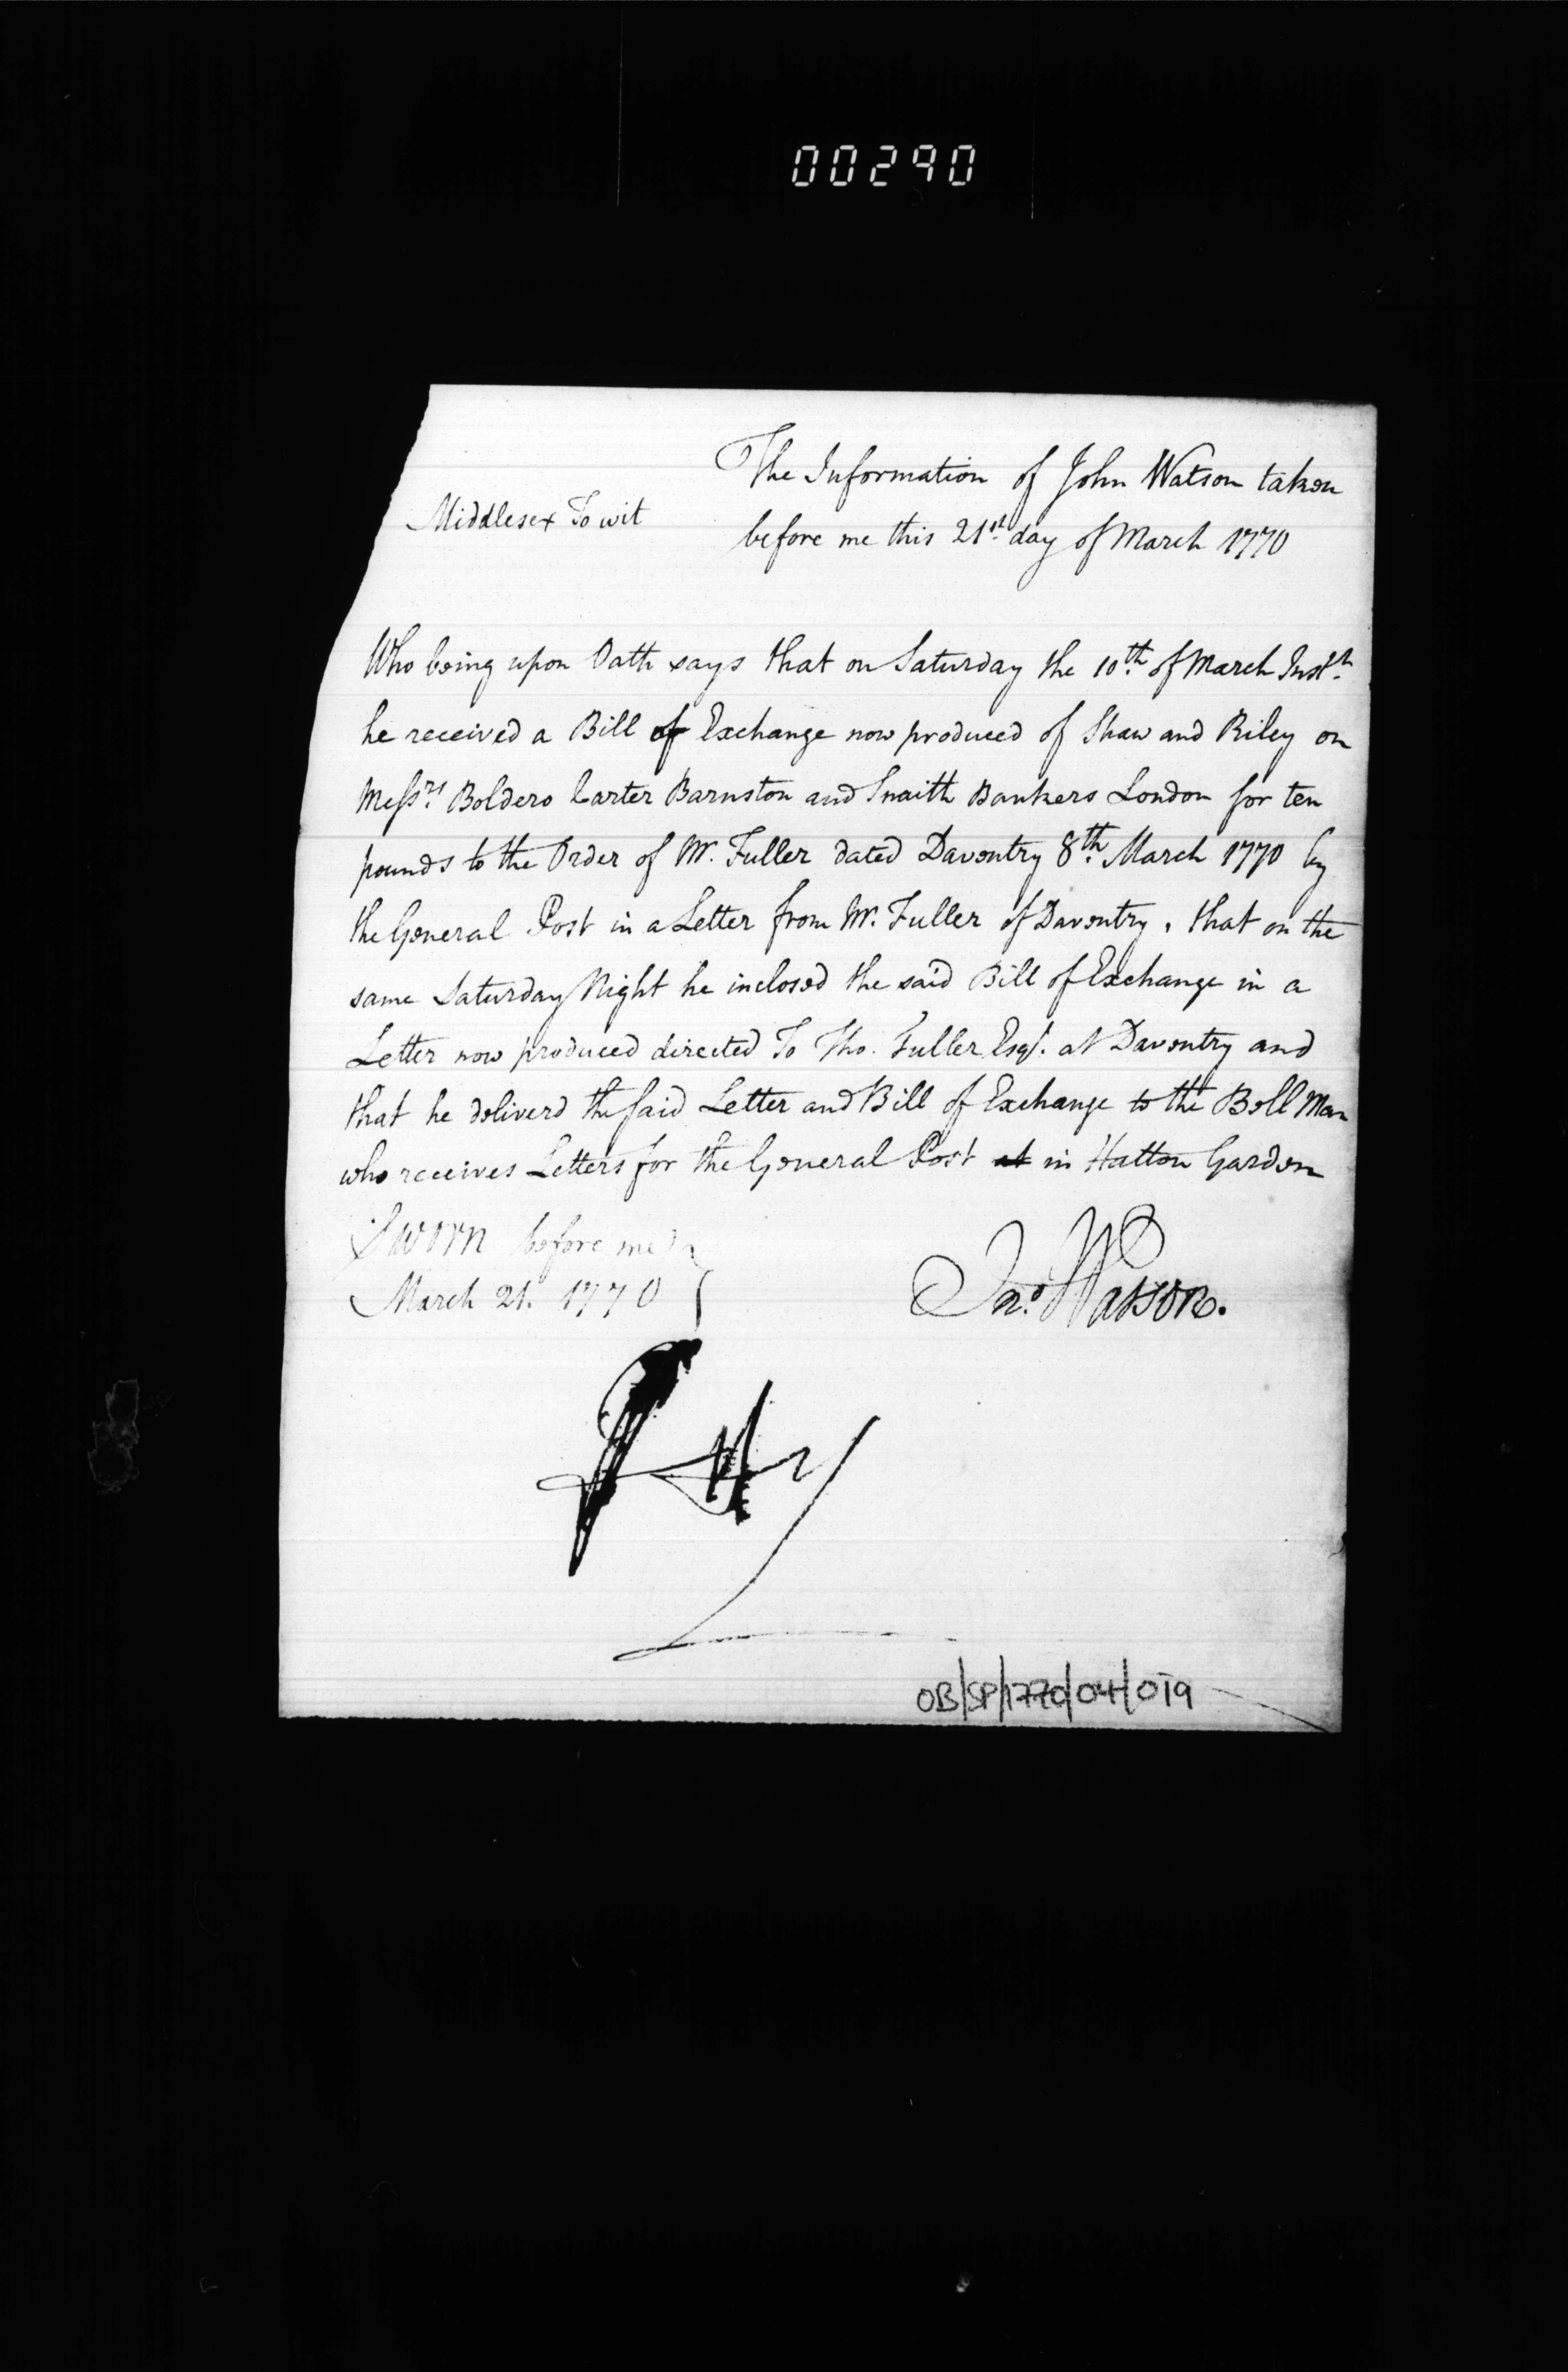 00290
The Information of John Watson taken
Middlesex To wit
before me this 21st. day of March 1770
Who being upon Oath says that on Saturday the 10th. of March Instt.
he received a Bill of Exchange now produced of Shaw and Riley on
Messrs. Boldero Carter Barnston and Snaith Bankers London for ten
pounds to the Order of W. Fuller dated Daventry 8th. March 1770 by
the General Post in a Letter from W. Fuller of Daventry. that on the
same Saturday Night he inclosed the said Bill of Exchange in a
Letter now produced directed To Tho. Fuller Esqr. at Daventry and
that he deliverd the said Letter and Bill of Exchange to the Bell Man
who receives Letters for the General Post at in Hatton Garden
Sworn before me
March 21. 1770
Jno. Watson.
OB/SP/1770/04/019